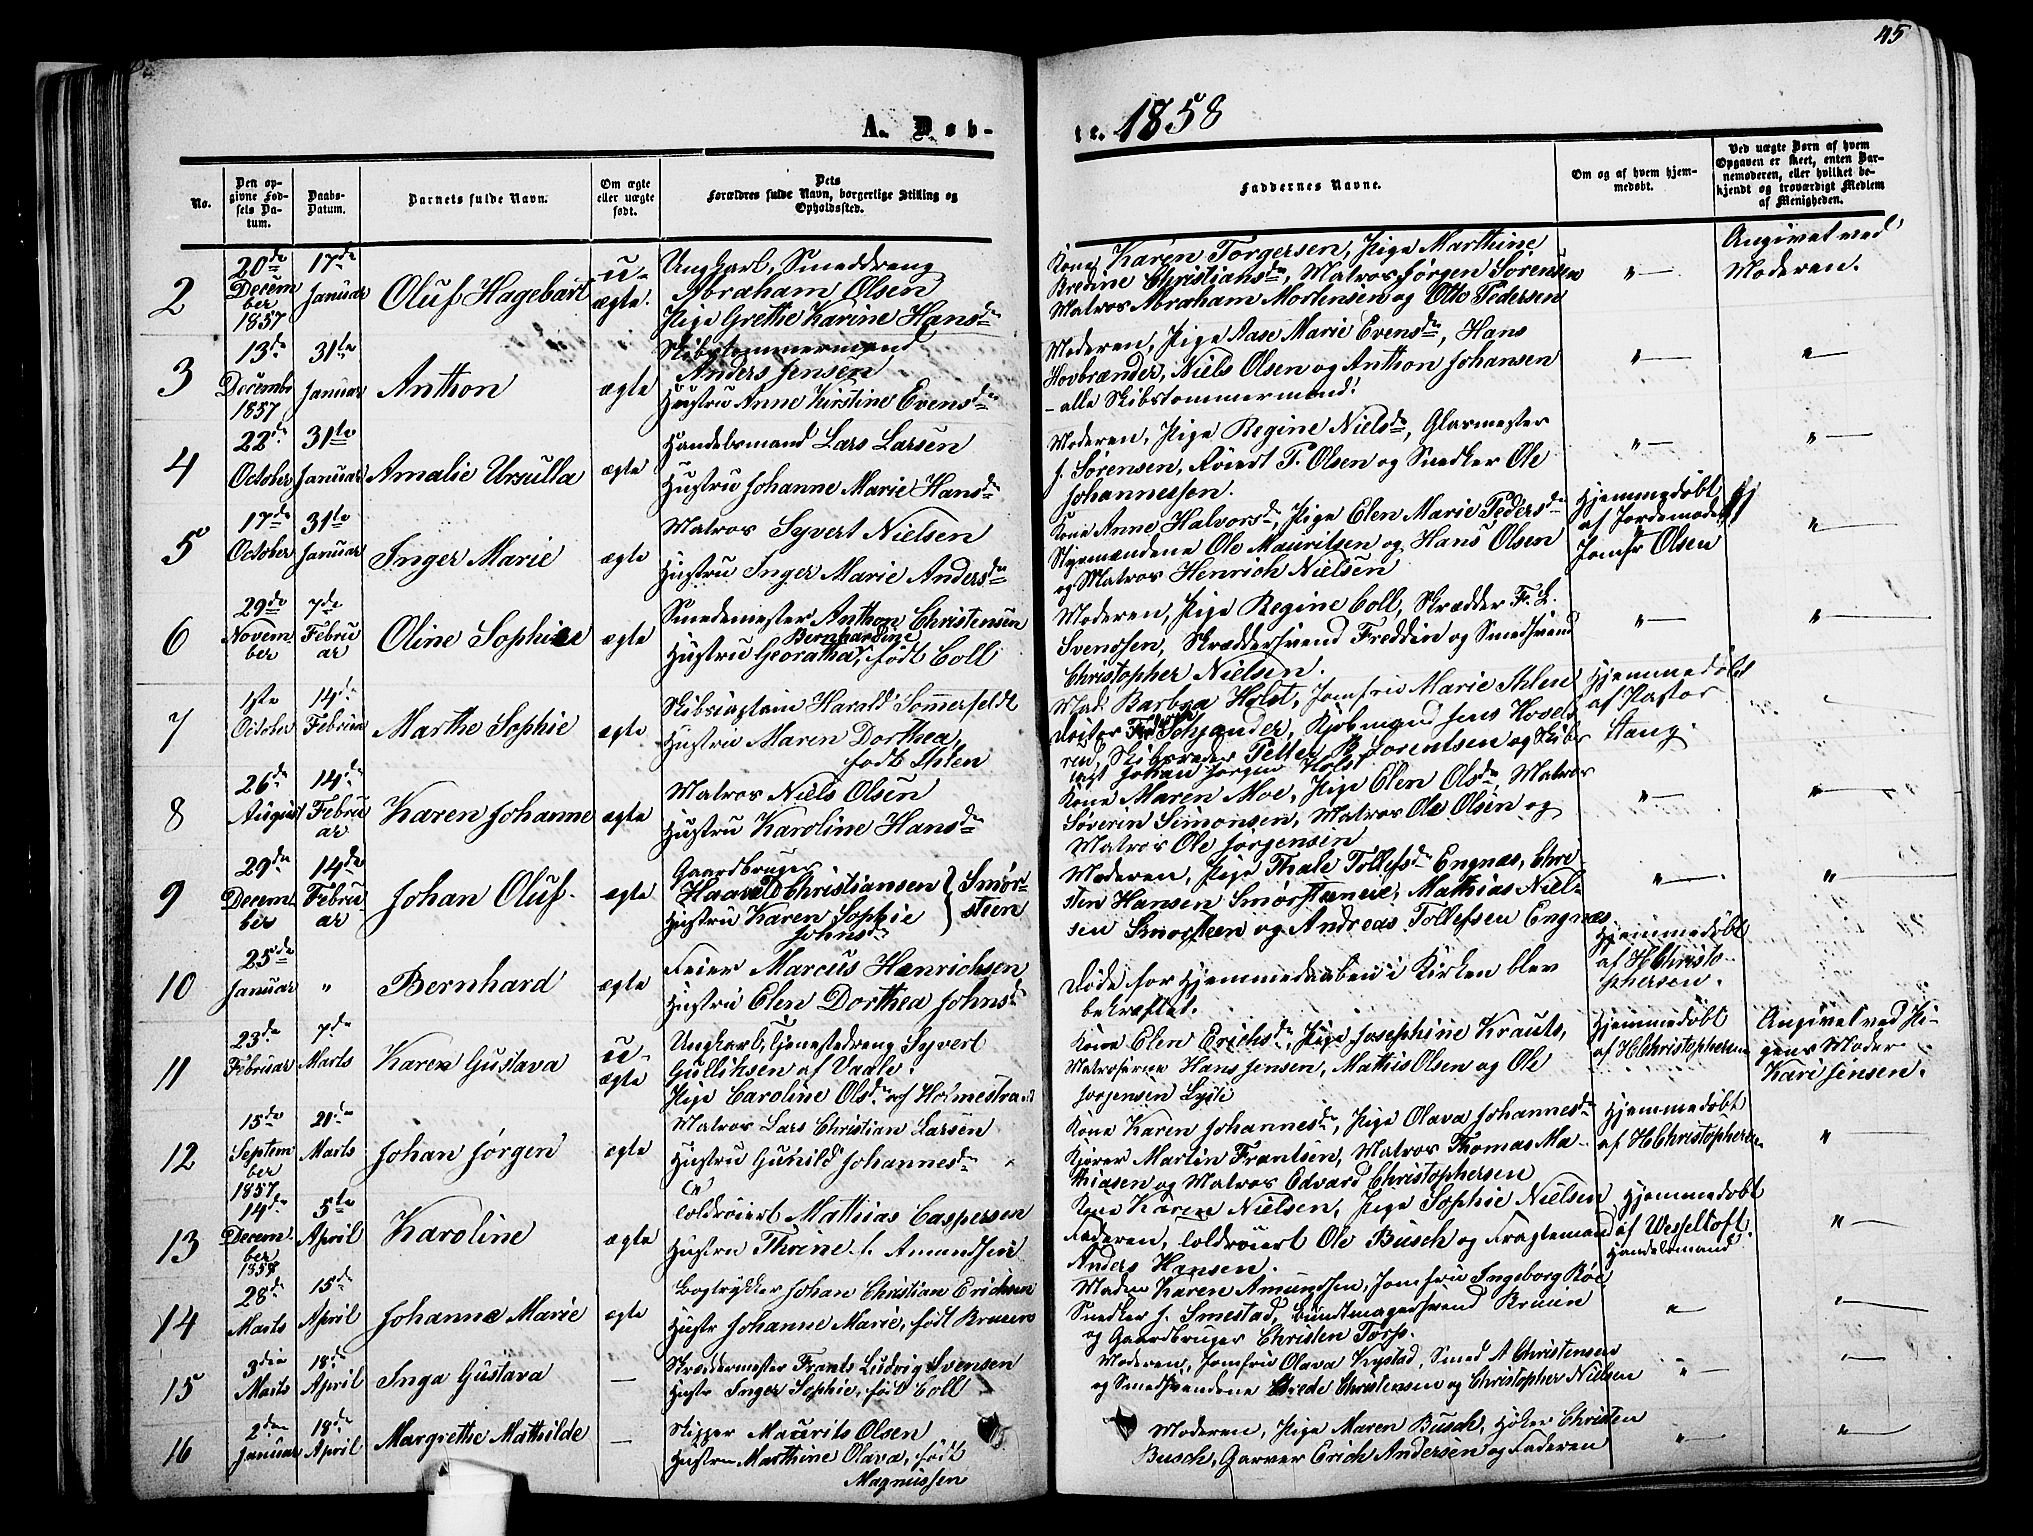 45
A. Døb-
te. 1858
No.
Den op-
givne Fød-
sels Da-
tum.
Daabs-
Datum.
Barnets fulde Navn.
Om ægte
eller uægte
født.
Dets
Forældres fulde Navn, borgerlige Stilling og
Opholdssted.
Faddernes Navne.
Om og af hvem hjem-
medøbt.
Ved uægte Børn af hvem
Opgaven er skeet, enten Bar-
nemoderen, eller hvilket be-
kjendt og troværdigt Medlem
af Menigheden.
2
20de
Decem
ber
1857
17de
Januar
Oluf Hagebart
u-
ægte.
Ungkarl, Smeddreng
Abraham Olsen
Pige Grethe Karine Hansdr
Kone Karen Torgersen, Pige Marthine
Bredine Christiansdr, Matros Jørgen Sørensen
Matros Abraham Mortensen og Otto Pedersen
"—
Angivet ved
Moderen.
3
13de
Decembr
1857
31te
Januar
Anthon
ægte
Skibstømmermand
Anders Jensen
Hustru Anne Kirstine Evensdr
Moderen, Pige Aase Marie Evensdr, Hans
Hovbrænder, Niels Olsen og Anthon Johansen
- alle Skibstømmermænd.
"—
"—
4
22de
October
31te
Januar
Amalie Ursulla
ægte
Handelsmand Lars Larsen
Hustru Johanne Marie Hansdr
Moderen, Pige Regine Nielsdr, Glarmester
J. Sørensen, P. Olsen og Snedker Ole
Johannessen.
"—
"—
5
17de
October
31te
Januar
Inger Marie
ægte
Matros Syvert Nielsen
Hustru Inger Marie Andersdr
Kone Anne Halvorsdr, Pige Elen Marie Pedersdr
Styrmændene Ole Mauritsen og Hans Olsen
og Matros Henrich Nielsen
Hjemmedøbt
af Jordemoder
Jomfr Olsen
"—
6
29de
Novem
ber
7de
Febru
ar
Oline Sophie
ægte
Smedemester Anthon Christensen
Bernhardine
Hustru Georatha, født Coll
Moderen, Pige Regine Coll, Skrædder F. L.
Svendsen, Skræddersvend Freddin og Smedsvend
Christopher Nielsen.
"—
"—
7
1ste
October
14de
Februar
Marthe Sophie
ægte
Skibscaptain Harald Sommerfeldt
Hustru Maren Dorthea,
født Ihlen
Mad. Barbra Holst, Jomfru Marie Ihlen
Schjander, Kjøbmand Jens Hovels
ren, Skibsreder Petter B. Lorentsen og Skibs
capt Johan Jørgen Holst
Hjemmedøbt
af Pastor
Stang.
8
26de
August
14de
Febru
ar
Karen Johanne
ægte
Matros Niels Olsen
Hustru Karoline Hansdr
Kone Maren Moe, Pige Elen Olsdr, Matros
Søverin Simonsen, Matros Ole Olsen og
Matros Ole Jørgensen
"—
"—
9
29de
Decem
ber
14de
Febru-
ar
Johan Oluf.
ægte
Gaardbruger
Haarald Christiansen
Hustru Karen Sophie
Johnsdr
Smør-
steen
Moderen, Pige Thale Tollefsdr Engnæs, Chri-
sten Hansen Smørsteneie, Mathias Niel-
sen Smørsteen og Andreas Tollefsen Engnæs
"—
"—
10
25de
Januar
"
Bernhard
ægte
Feier Marcus Hanrichsen
Hustru Elen Dorthea Johnsdr
Døde før Hjemmedaaben i Kirken blev
bekræftet.
Hjemmedøbt
af H Christo-
phersen.
11
23de
Februar
7de
Marts
Karen Gustava
u-
ægte
Ungkarl, Tjenestedreng Syvert
Gulliksen af Vaale.
Pige Caroline Olsdr af Holmestrand
Kone Elen Erichsdr, Pige Josephine Krauts,
Matroserne Hans Jensen, Mathis Olsen og Ole
Jørgensen
Hjemmedøbt
af H Christophersen
Angivet ved Pi-
gens Moder
Kari Jensen.
12
15de
Septem
ber
1857
21de
Marts
Johan Jørgen
ægte
Matros Lars Christian Larsen
Hustru Gunild Johannesdr
Kone Karen Johannesdr, Pige Olava Johannesdr
Kjører Martin Frantsen, Matros Thomas Ma-
thiasen og Matros Edvard Christophersen
Hjemmedøbt
af H Christophersen
"—
13
14de
Decem-
ber
5te
April
Karoline
ægte
Toldroiert Mathias Caspersen
Hustru Thrine f. Amundsen
Kone Karen Nielsen, Pige Sophie Nielsen
Faderen, Toldroiert Ole Busch og Fragtemand
Anders Hansen.
Hjemmedøbt
af Wesseltoft.
Handelsmand
"—
14
28de
Marts
15de
April
Johanne Marie
ægte
Bogtrykker Johan Christian Erichsen
Hustr Johanne Marie, født Bruun
Madm Karen Amundsen, Jomfru Ingeborg Bøe
Snedker J. Smestad, Bundtmagersvend Bruun
og Gaardbruger Christen Torp.
"—
"—
15
3die
Marts
18de
April
Inga Gustava
—
Skræddermester Frants Ludvig Svensen
Hustr Inger Sophie, født Coll
Moderen, Jomfru Olava Kystad, Smed A Christensen
og Smedsvendene Brede Christensen og Christopher Nielsen
"—
"—
16
2den
Januar
18de
April
Margrethe Mathilde
—
Skipper Maurits Olsen
Hustru Marthine Olava, født
Magnussen
Moderen, Pige Maren Busch, Høker Christen
Busch, Garver Erich Andersen og Faderen
"—
"—